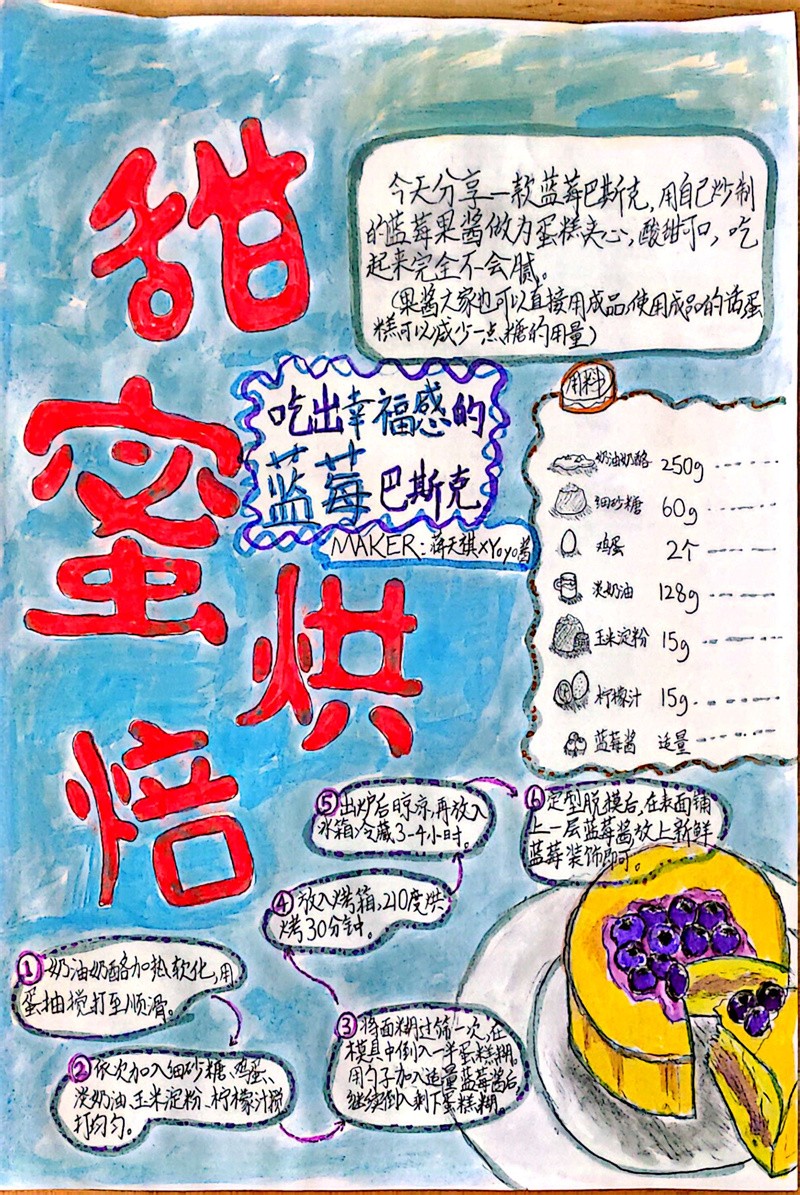 甜
蜜
烘
焙
今天分享一款蓝莓巴斯克,用自己炒制
的蓝莓果酱做为蛋糕夹心,酸甜可口,吃
起来完全不会腻。
(果酱大家也可以直接用成品,使用成品的话蛋
糕可以减少一点糖的用量)
吃出幸福感的
蓝莓巴斯克
MAKER:蒋天琪XYoyo酱
用料
奶油奶酪 250g
细砂糖 60g
鸡蛋 2个
淡奶油 128g
玉米淀粉 15g
柠檬汁 15g
蓝莓酱 适量
①奶油奶酪加热软化,用
蛋抽搅打至顺滑。
②依次加入细砂糖、鸡蛋、
淡奶油、玉米淀粉、柠檬汁搅
打均匀。
③将面糊过筛一次,在
模具中倒入一半蛋糕糊.
用勺子加入适量蓝莓酱后
继续倒入剩下蛋糕糊.
④放入烤箱,210度烘
烤30分钟。
⑤出炉后晾凉,再放入
冰箱冷藏3-4小时.
⑥定型脱模后,在表面铺
上一层蓝莓酱放上新鲜
蓝莓装饰即可。